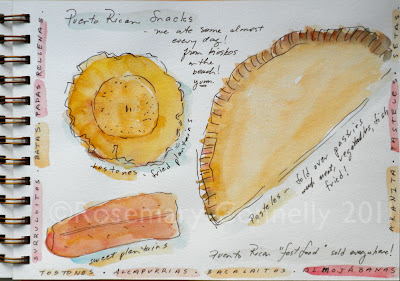 Puerto Rican Snacks
- we ate some almost
every day!
from kiosks
on the
beach!
yum.
tostones - fried plantains
sweet plantains
Pasteles -
fold over pastries
meat, vegetables, fish
fried!
Puerto Rican "fast food" sold everywhere!
SURRULLITOS · BATAS · PAPAS RELLENAS ·
TOSTONES · ALCAPURRIAS · BACALAITOS · ALMOJÁBANAS
PASTELES · SETAS
© Rosemary Connelly 201